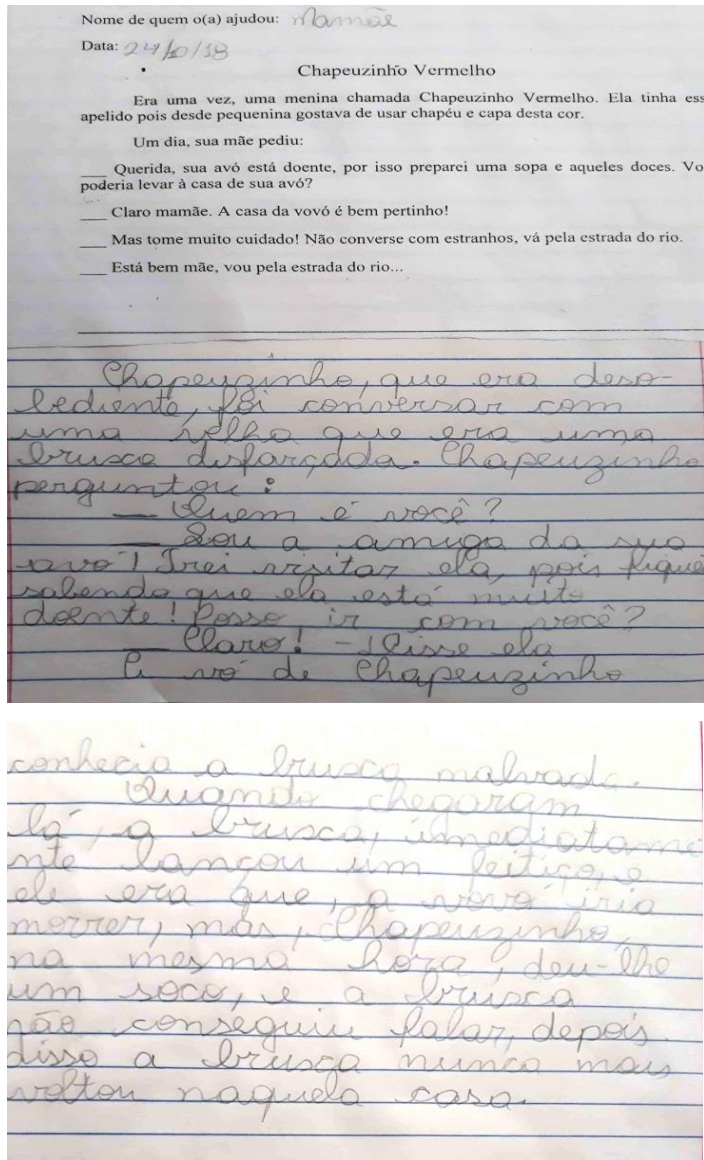 Nome de quem o(a) ajudou: Mamãe
Data: 24/10/18
Chapeuzinho Vermelho
Era uma vez, uma menina chamada Chapeuzinho Vermelho. Ela tinha ess
apelido pois desde pequenina gostava de usar chapéu e capa desta cor.
Um dia, sua mãe pediu:
___ Querida, sua avó está doente, por isso preparei uma sopa e aqueles doces. Vo
poderia levar à casa de sua avó?
___ Claro mamãe. A casa da vovó é bem pertinho!
___ Mas tome muito cuidado! Não converse com estranhos, vá pela estrada do rio.
___ Está bem mãe, vou pela estrada do rio...
Chapeuzinho, que era deso-
bediente, foi conversar com
uma velha que era uma
brusca disfarçada. Chapeuzinho
perguntou:
— Quem é você?
— Sou a amiga da sua
avó! Irei visitar ela, pois fique
sabendo que ela está muito
doente! Posso ir com você?
— Claro! - Disse ela
A vó de Chapeuzinho
conhecia a brusca malvada.
Quando chegaram
lá, a brusca, imediatame
nte lançou um feitiço, e
ele era que, a vovó iria
morrer, mas, Chapeuzinho,
na mesma hora, deu-lhe
um soco, e a brusca
não conseguiu falar, depois
disso a brusca nunca mais
voltou naquela casa.